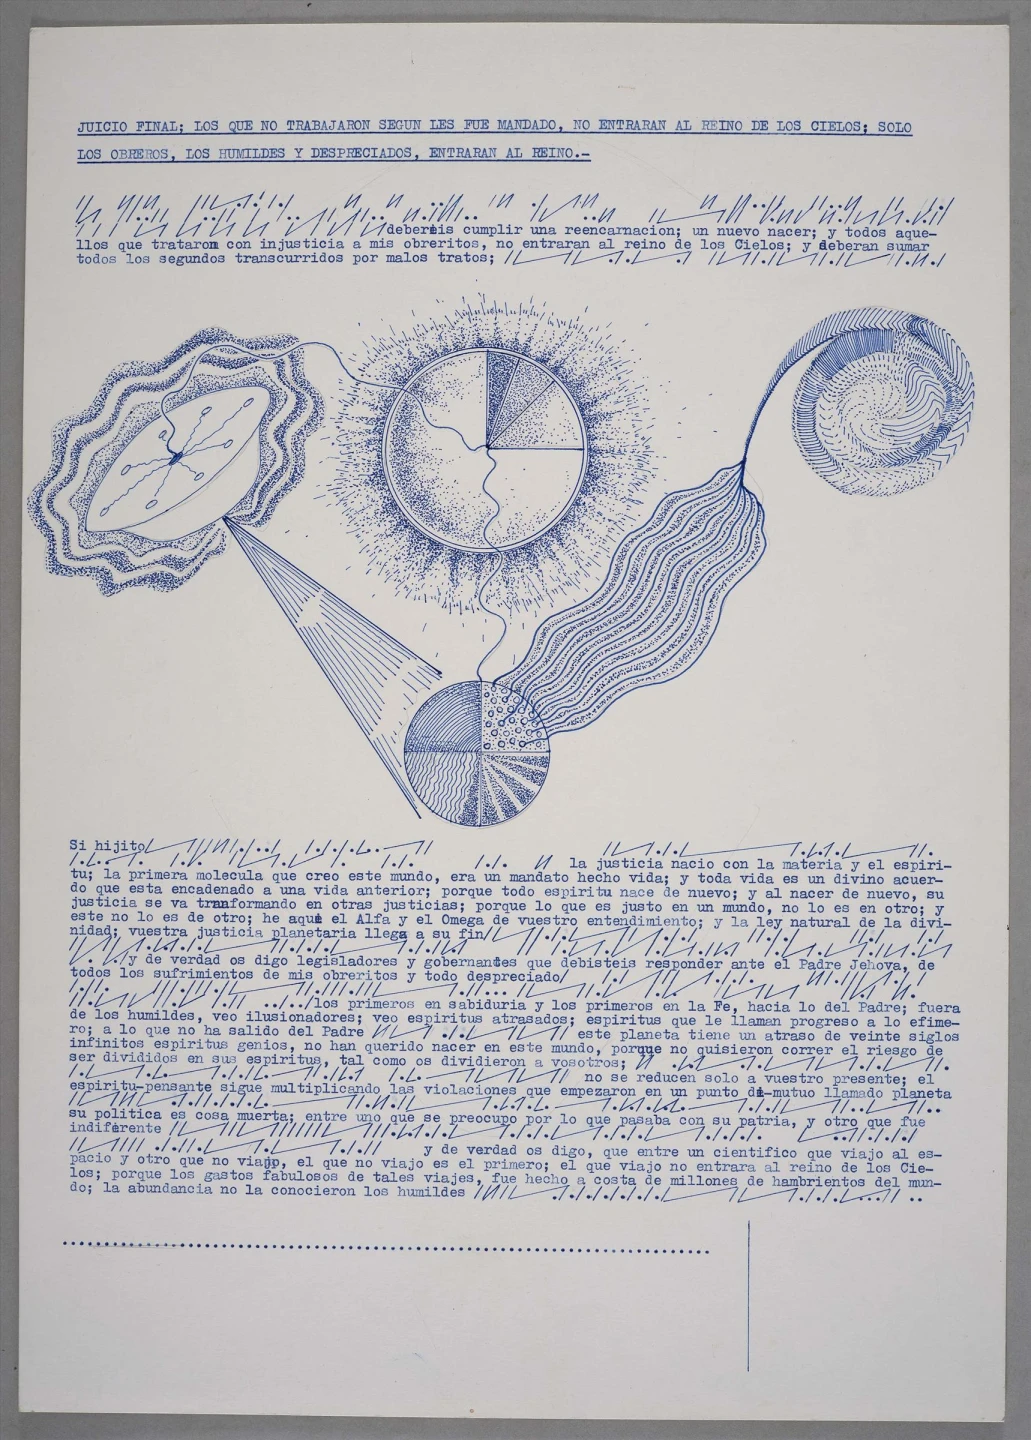 JUICIO FINAL; LOS QUE NO TRABAJARON SEGUN LES FUE MANDADO, NO ENTRARAN AL REINO DE LOS CIELOS; SOLO
LOS OBREROS, LOS HUMILDES Y DESPRECIADOS, ENTRARAN AL REINO.-
debereis cumplir una reencarnacion; un nuevo nacer; y todos aque-
llos que trataron con injusticia a mis obreritos, no entraran al reino de los Cielos; y deberan sumar
todos los segundos transcurridos por malos tratos;
Si hijito
la justicia nacio con la materia y el espiri-
tu; la primera molecula que creo este mundo, era un mandato hecho vida; y toda vida es un divino acuer-
do que esta encadenado a una vida anterior; porque todo espiritu nace de nuevo; y al nacer de nuevo, su
justicia se va tranformando en otras justicias; porque lo que es justo en un mundo, no lo es en otro; y
este no lo es de otro; he aqui el Alfa y el Omega de vuestro entendimiento; y la ley natural de la divi-
nidad; vuestra justicia planetaria llega a su fin
y de verdad os digo legisladores y gobernantes que debisteis responder ante el Padre Jehova, de
todos los sufrimientos de mis obreritos y todo despreciado
los primeros en sabiduria y los primeros en la Fe, hacia lo del Padre; fuera
de los humildes, veo ilusionadores; veo espiritus atrasados; espiritus que le llaman progreso a lo efime-
ro; a lo que no ha salido del Padre este planeta tiene un atraso de veinte siglos
infinitos espiritus genios, no han querido nacer en este mundo, porque no quisieron correr el riesgo de
ser divididos en sus espiritus, tal como os dividieron a vosotros;
no se reducen solo a vuestro presente; el
espiritu-pensante sigue multiplicando las violaciones que empezaron en un punto di-mutuo llamado planeta
su politica es cosa muerta; entre uno que se preocupo por lo que pasaba con su patria, y otro que fue
indiferente
y de verdad os digo, que entre un cientifico que viajo al es-
pacio y otro que no viajo, el que no viajo es el primero; el que viajo no entrara al reino de los Cie-
los; porque los gastos fabulosos de tales viajes, fue hecho a costa de millones de hambrientos del mun-
do; la abundancia no la conocieron los humildes